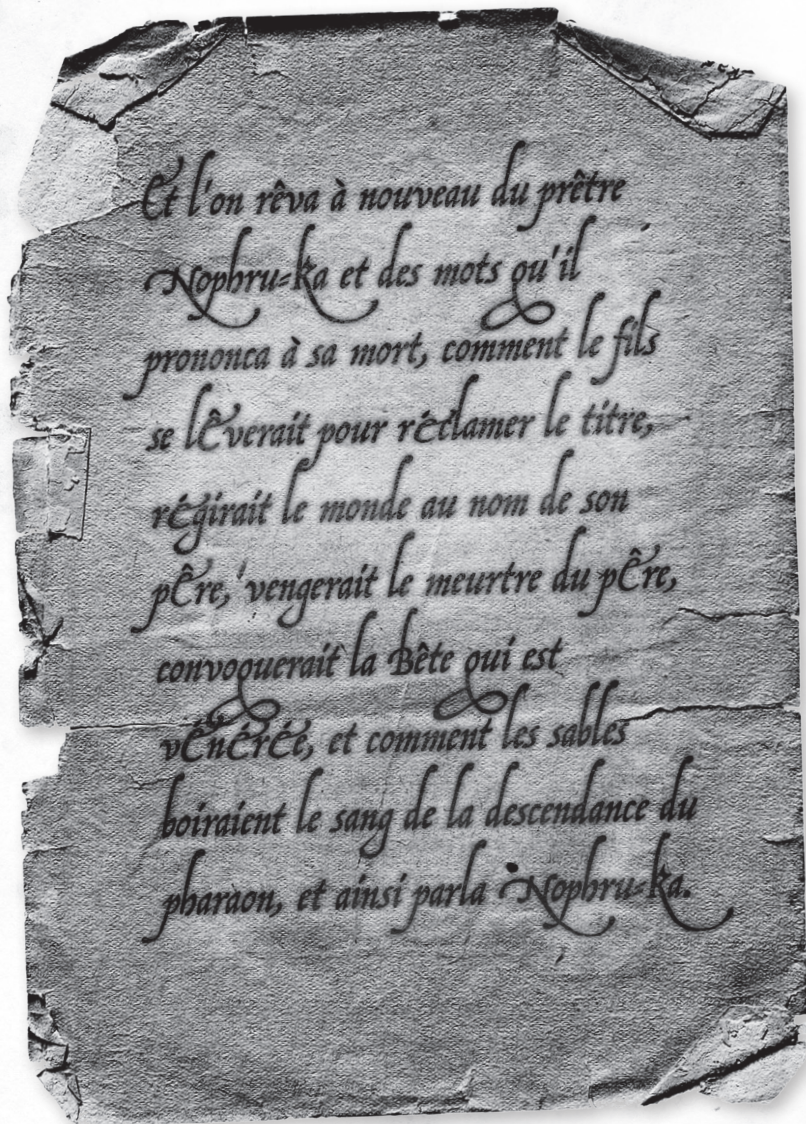 Et l'on rêva à nouveau du prêtre
Nophru-ka et des mots qu'il
prononca à sa mort, comment le fils
se lêverait pour réclamer le titre,
régirait le monde au nom de son
pêre, vengerait le meurtre du pêre,
convoquerait la Bête qui est
vênérée, et comment les sables
boiraient le sang de la descendance du
pharaon, et ainsi parla Nophru-ka.